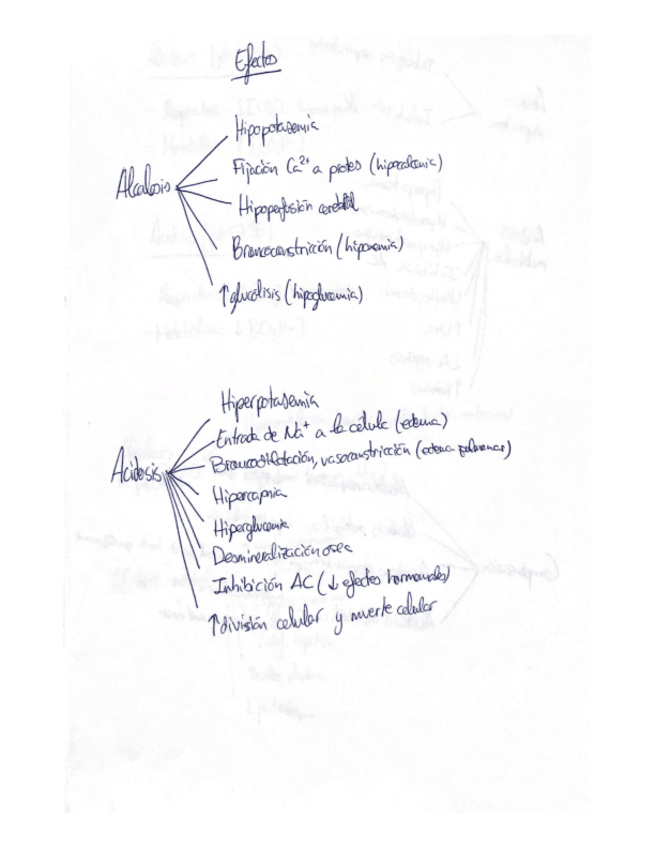 Efectos
Hipopotasemia
Alcalosis
Fijación Ca²⁺ a protes (hipocalcemia)
Hipoperfusión cerebral
Broncoconstricción (hipoxemia)
↑glucólisis (hipoglucemia)
Hiperpotasemia
Entrada de Na⁺ a la célula (edema)
Broncodilatación, vasoconstricción (edema pulmonar)
Acidosis
Hipercapnia
Hiperglucemia
Desmineralización ósea
Inhibición AC (↓ efectos hormonales)
↑división celular y muerte celular